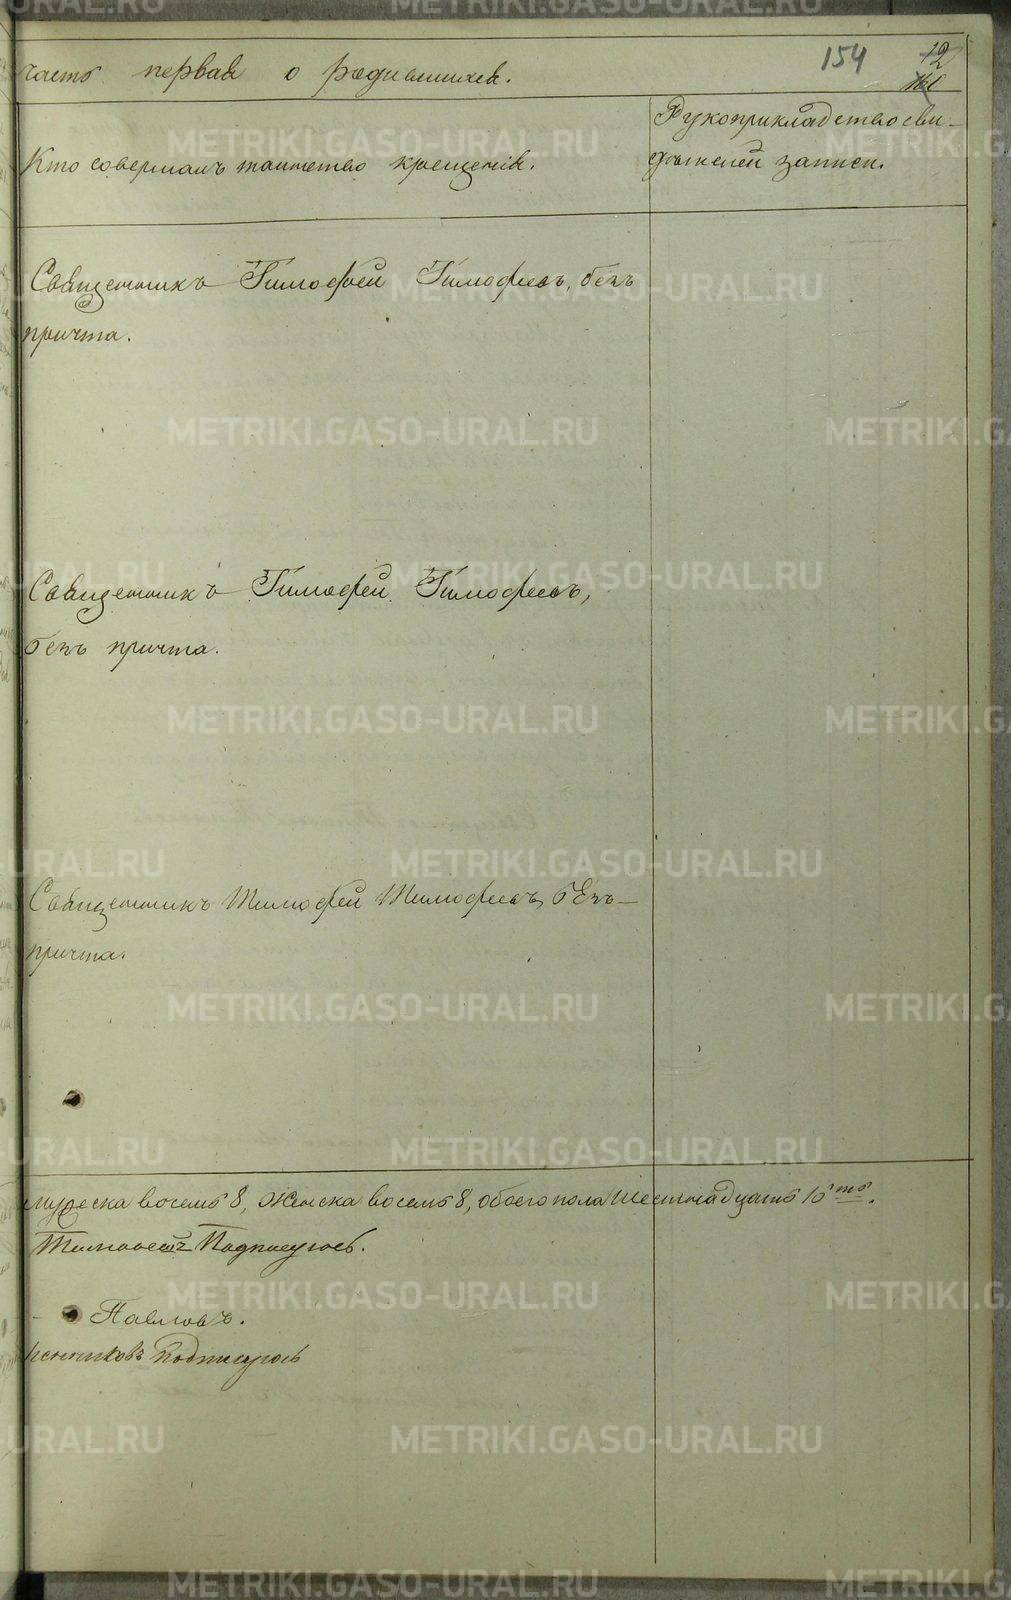 часть первая о родившихся.
154
12
Кто совершалъ таинство крещенія.
Рукоприкладство сви-
дѣтелей записи.
Священникъ Тимофей Тимофеевъ, безъ
причта.
Священникъ Тимофей Тимофеевъ,
безъ причта.
Священникъ Тимофей Тимофеевъ, безъ
причта.
мужеска восемь 8, женска восемь 8, обоего пола шестнадцать 16ть.
Тимофеевъ Подписуюсь.
Павловъ.
подписуюсь
METRIKI.GASO-URAL.RU